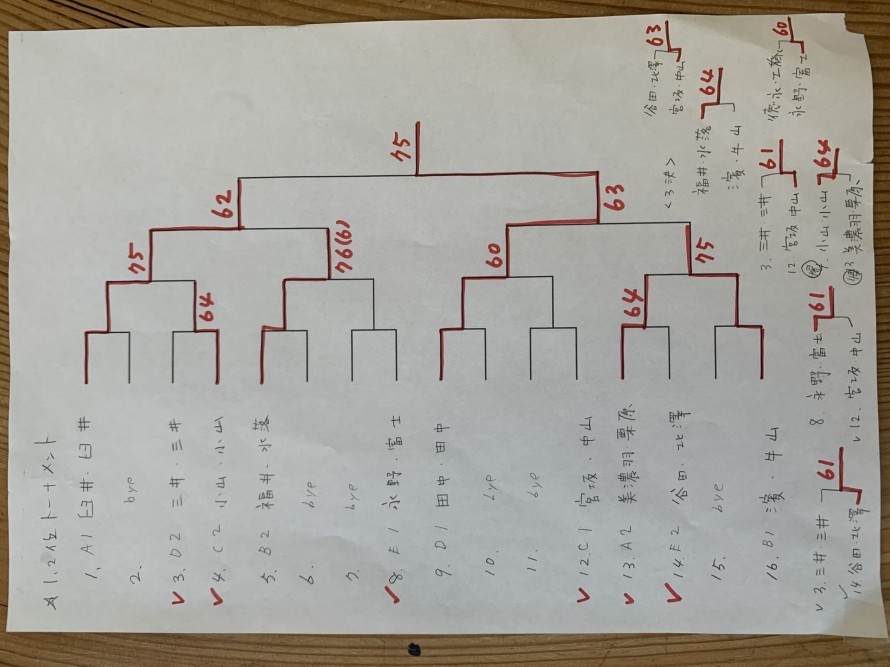 1,2位トーナメント
1. A1 臼井・臼井
2. bye
✓3. D2 三井・三井
✓4. C2 小山・小山
5. B2 福井・水落
6. bye
7. bye
✓8. E1 永野・富士
9. D1 田中・田中
10. bye
11. bye
✓12. C1 宮坂・中山
✓13. A2 美濃羽・栗原
✓14. E2 谷田・北澤
15. bye
16. B1 濱・牛山
64
75
62
76(6)
75
60
64
75
63
<3決>
福井・水落
濱・牛山
64
谷田・北澤
宮坂・中山
63
永野・富士
60
3. 三井 三井
12. 宮坂 中山
61
小山 小山
美濃羽 栗原
64
8. 永野・富士
✓12. 宮坂 中山
61
✓3. 三井 三井
✓14. 谷田・北澤
61